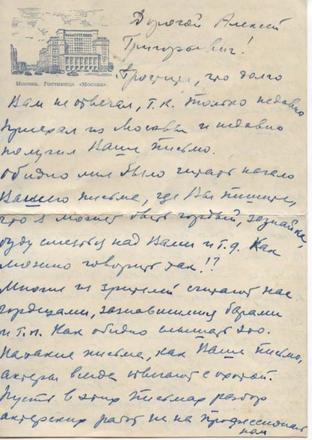 Дорогой Алексей
Григорьевич!
Москва. Гостиница «Москва»
Простите, что долго
Вам не отвечал, т.к. только недавно
приехал из Москвы и недавно
получил Ваше письмо.
Обидно мне было читать начало
Вашего письма, где Вы пишите,
что я может быть гордый, зазнайка,
буду смеяться над Вами и т.д. Как
можно говорить так!?
Многие из зрителей считают нас
гордецами, зазнавшимися барами
и т.п. Как обидно слышать это.
На такие письма, как Ваше письмо,
актеры всегда отвечают с охотой.
Пусть в этих письмах разбор
актерских работ не на профессиональ
ном